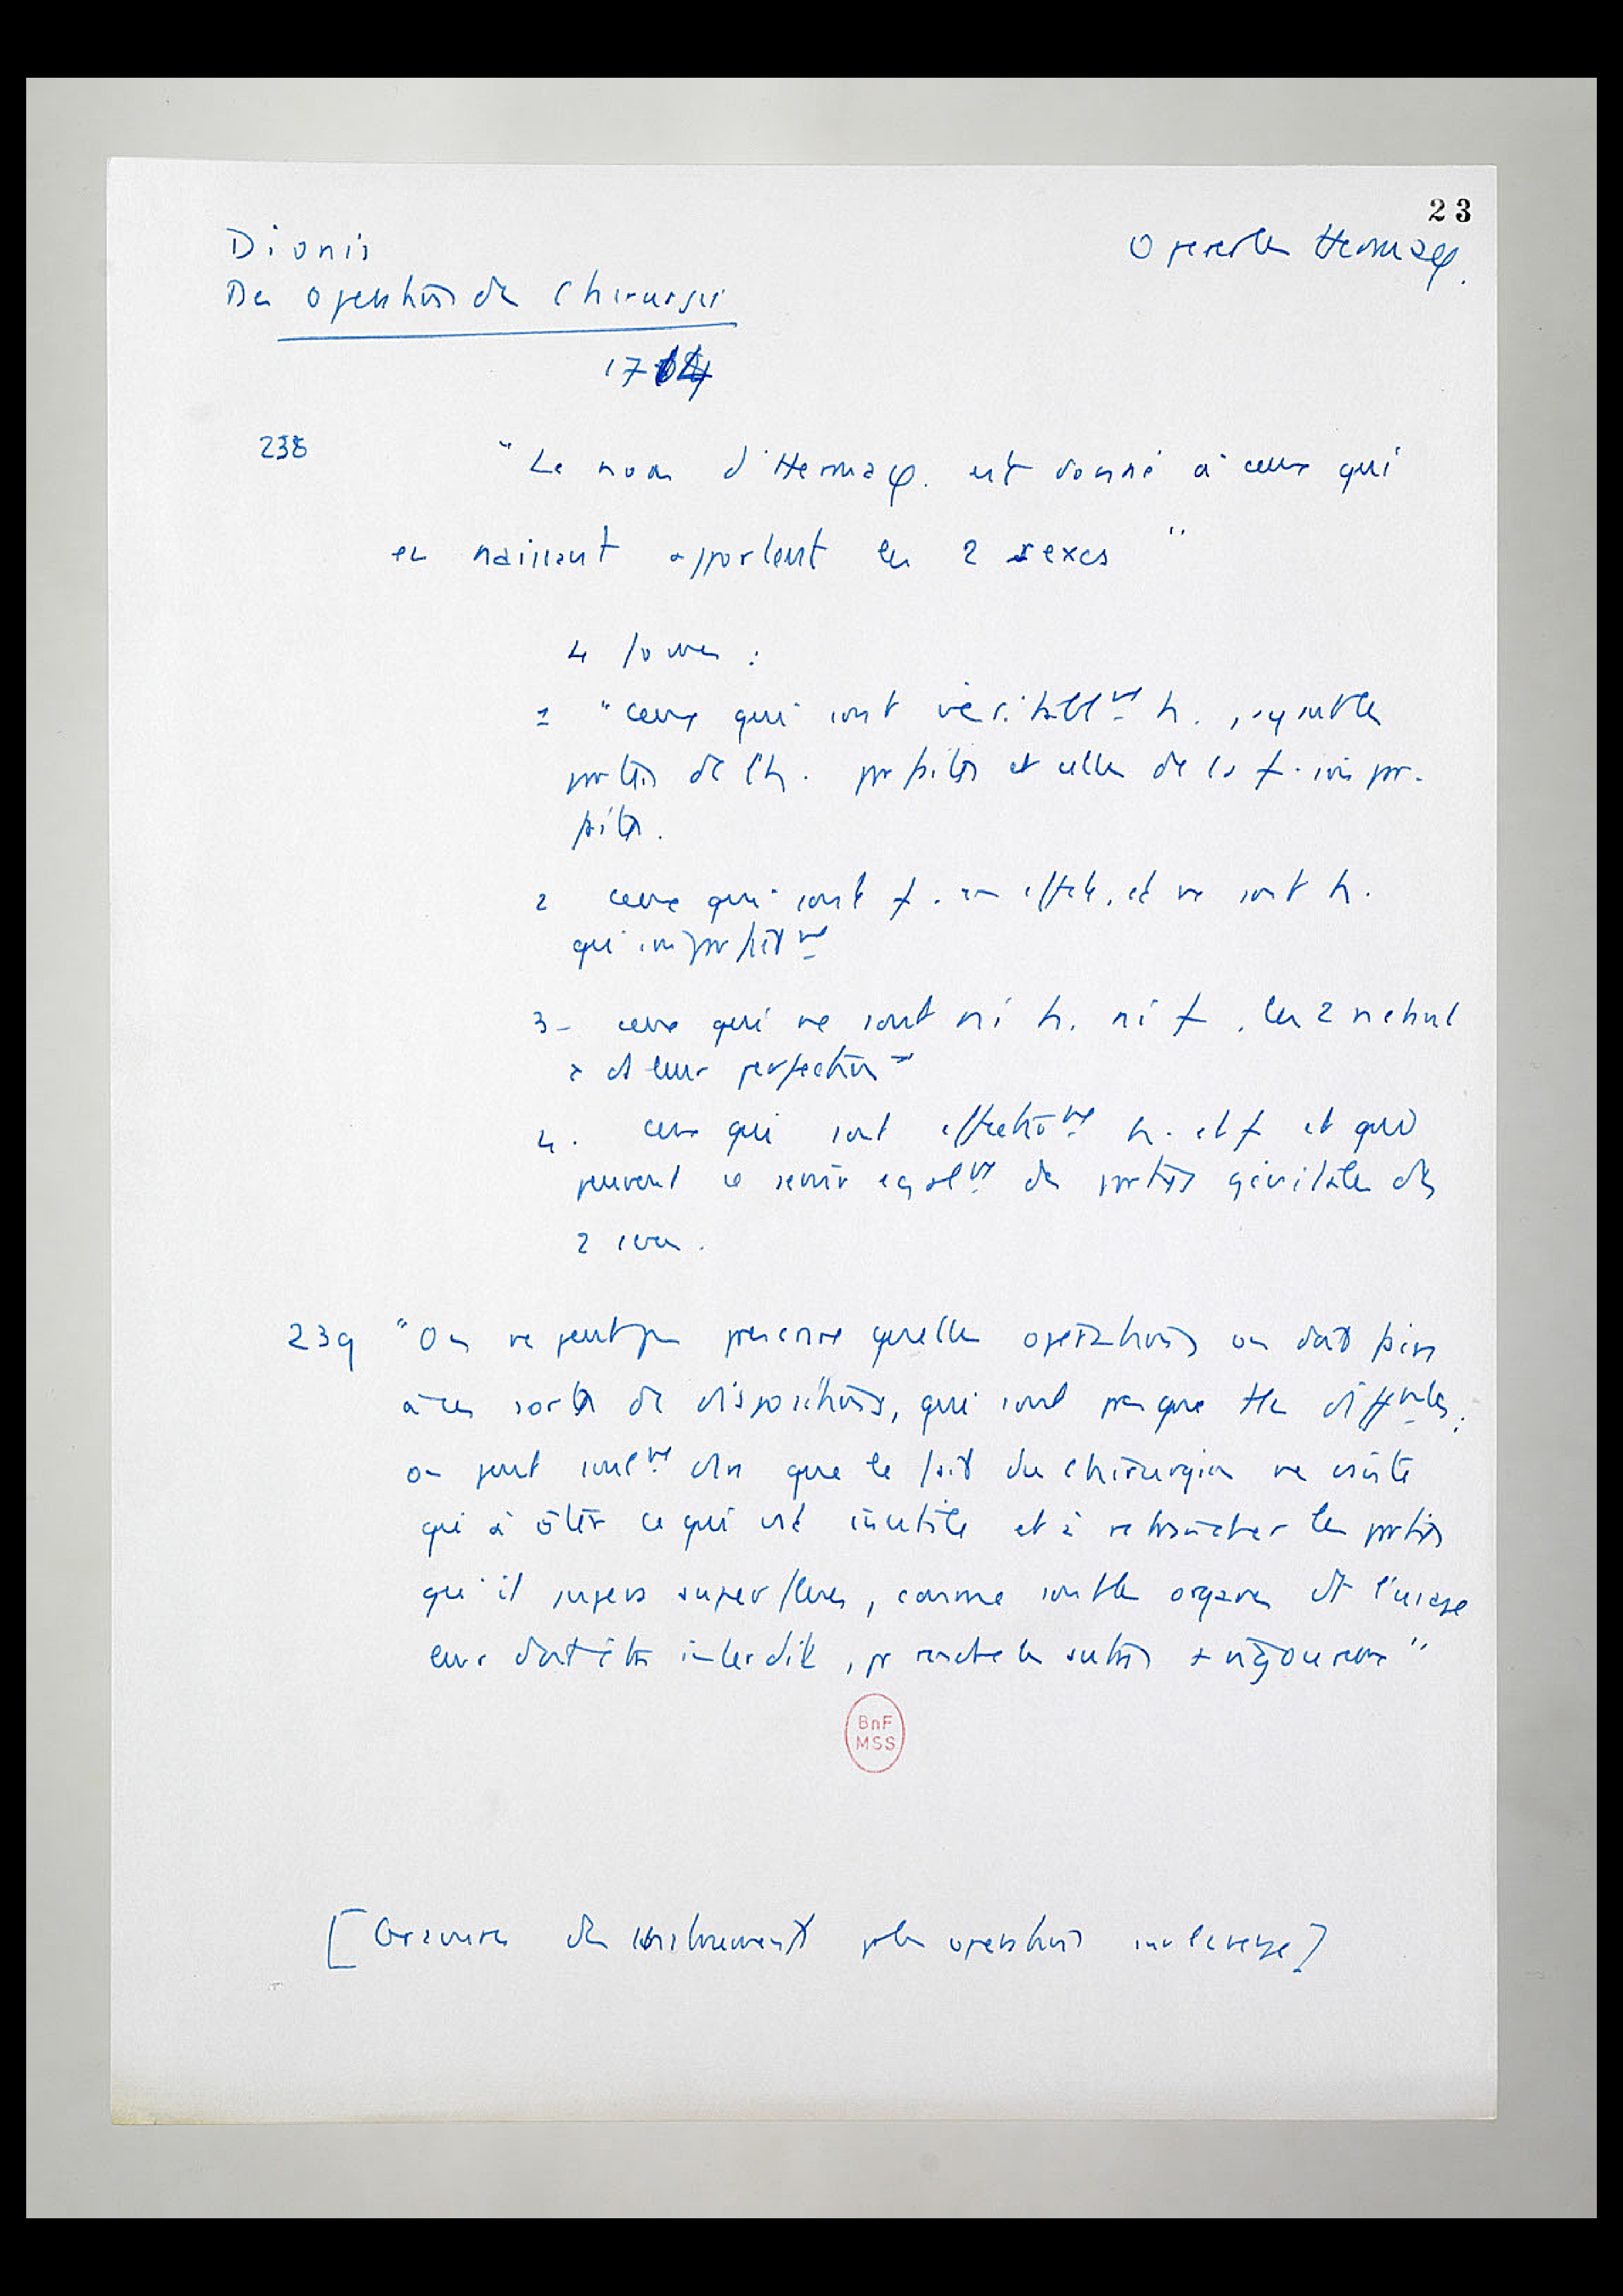 23
Dionis
Operer les Hermaφ.
Des operations de Chirurgie
1714
238
"Le nom d'Hermaφ. est donné à ceux qui
en naissant apportent les 2 sexes"
4 formes :
1 "ceux qui sont véritablmt h., ayant les
parties de l'h. parfaites et celles de la f. impar-
faites.
2 ceux qui sont f. en effet, et ne sont h.
qu'imparfaitmt
3 - ceux qui ne sont ni h. ni f, les 2 n'étant
ds leur perfection"
4. ceux qui sont effectivmt h. et f et qui
peuvent se servir egalmt des parties génitales des
2 sexes.
239 "On ne peut pas prescrire quelles operations on doit faire
à ces sortes de dispositions, qui sont presque ttes diffrentes ;
on peut seulmt dire que le fait du chirurgien ne consiste
qu'à ôter ce qui est inutile et à retrancher les parties
qu'il jugera superflues, comme sont les organes dt l'usage
leur doit être interdit, pr rendre les autres + vigoureux"
BnF
MSS
[Gravures des instruments pr les operations sur la verge]